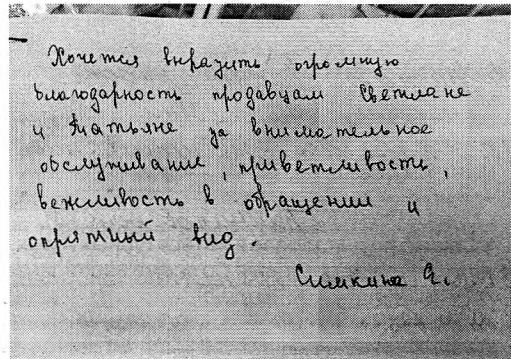 Хочется выразить огромную
благодарность продавцам Светлане
и Татьяне за внимательное
обслуживание, приветливость,
вежливость в обращении и
опрятный вид.
Симкина